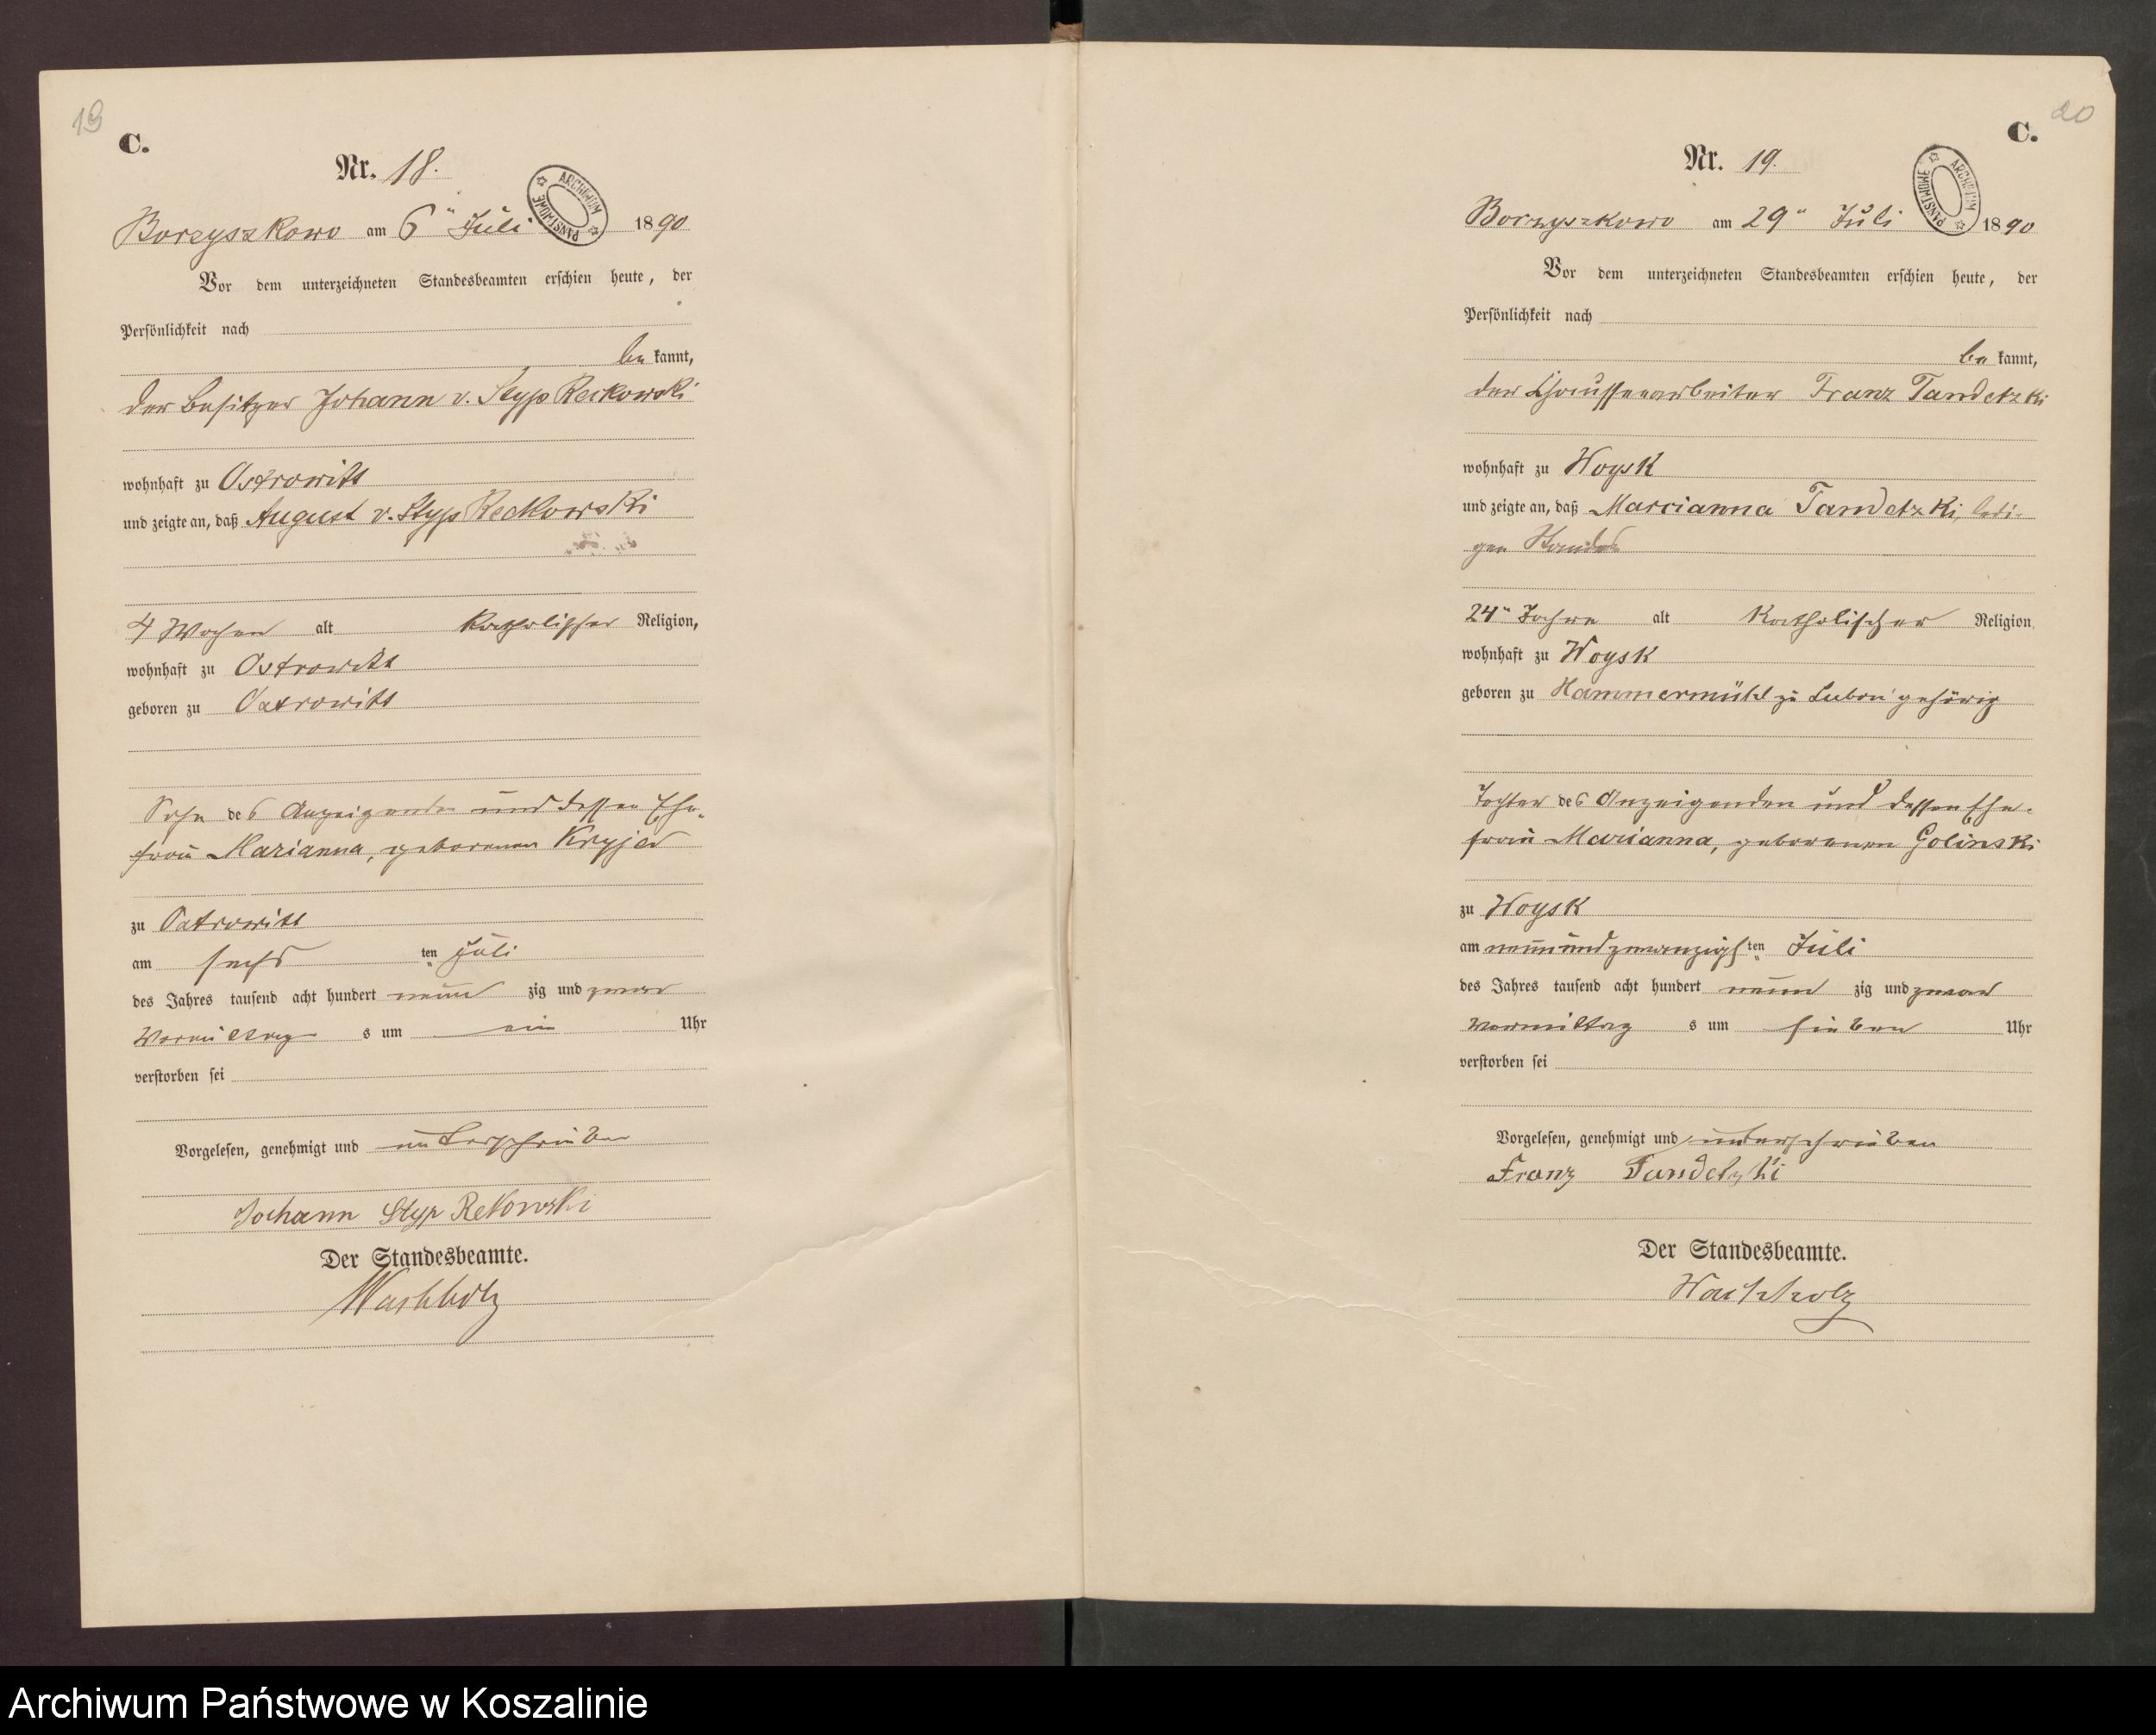 19
C.
Nr. 18.
ARCHIWUM PAŃSTWOWE
Borzyszkowo am 6ⁿ Juli 1890
Vor dem unterzeichneten Standesbeamten erschien heute, der
Persönlichkeit nach
be kannt,
der Besitzer Johann v. Styp Reckowski
wohnhaft zu Ostrowitt
und zeigte an, daß August v. Styp Reckowski
4 Wochen alt katholischer Religion,
wohnhaft zu Ostrowitt
geboren zu Ostrowitt
Sohn des Anzeigenden und dessen Ehe-
frau Marianna, geborenen
zu Ostrowitt
am sechs ten Juli
des Jahres tausend acht hundert neun zig und zwar
Vormittag s um ein Uhr
verstorben sei
Vorgelesen, genehmigt und unterschrieben
Johann Styp Rekowski
Der Standesbeamte.
Wachholz
20
C.
Nr. 19.
ARCHIWUM PAŃSTWOWE
Borzyszkowo am 29ⁿ Juli 1890
Vor dem unterzeichneten Standesbeamten erschien heute, der
Persönlichkeit nach
be kannt,
der Chausseearbeiter Franz Tandetzki
wohnhaft zu Woysk
und zeigte an, daß Marcianna Tandetzki, ledi-
gen Standes
24ⁿ Jahre alt katholischer Religion
wohnhaft zu Woysk
geboren zu Hammermühl zu Lubon gehörig
Tochter des Anzeigenden und dessen Ehe-
frau Marianna, geborenen Golinski
zu Woysk
am neunundzwanzigs ten Juli
des Jahres tausend acht hundert neun zig und zwar
Vormittag s um sieben Uhr
verstorben sei
Vorgelesen, genehmigt und unterschrieben
Franz Tandetzki
Der Standesbeamte.
Wachholz
Archiwum Państwowe w Koszalinie